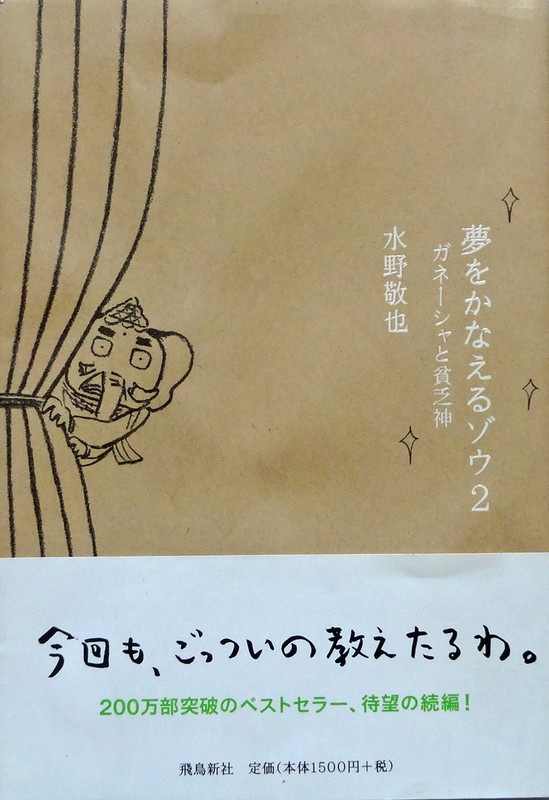 夢をかなえるゾウ2
ガネーシャと貧乏神
水野敬也
今回も、ごっついの教えたるわ。
200万部突破のベストセラー、待望の続編！
飛鳥新社　定価(本体1500円＋税)